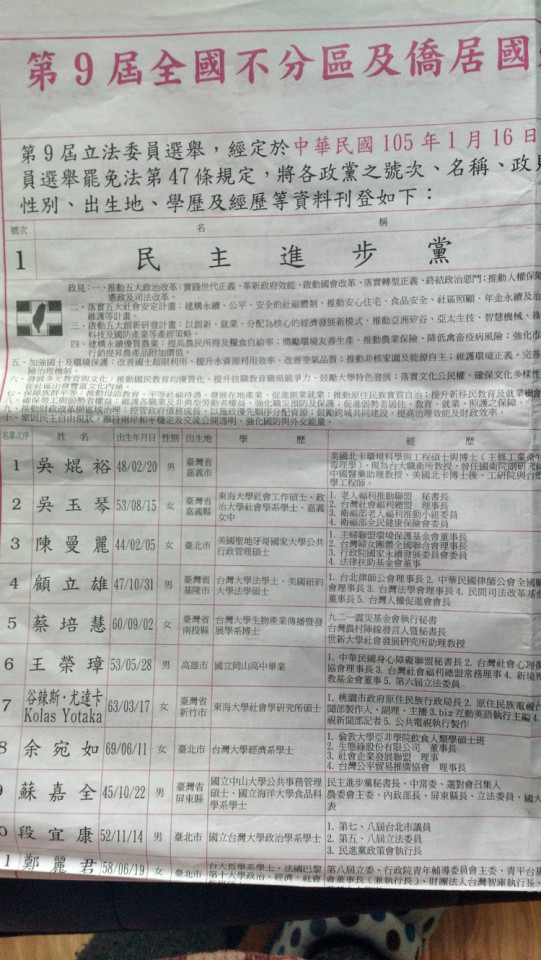 第9屆全國不分區及僑居國
第9屆立法委員選舉，經定於中華民國105年1月16日
員選舉罷免法第47條規定，將各政黨之號次、名稱、政見
性別、出生地、學歷及經歷等資料刊登如下：
號次 名 稱
1 民主進步黨
政見：一、推動五大政治改革：實踐世代正義、革新政府效能、啟動國會改革、落實轉型正義、終結政治惡鬥；推動人權保障
憲政及司法改革。
二、落實五大社會安定計畫：建構永續、公平、安全的社福體制，推動安心住宅、食品安全、社區照顧、年金永續及治
維護等計畫。
三、啟動五大創新研發計畫：以創新、就業、分配為核心的經濟發展新模式，推動亞洲矽谷、亞太生技、智慧機械、綠
科技與國防產業等產經策略。
四、建構永續優質農業：提高農民所得及糧食自給率；獎勵環境友善生產、推動農業保險、降低禽畜疫病風險；強化市
行銷提昇農產品附加價值。
五、加強國土及環境保護：改善國土超限利用、提升水資源利用效率、改善空氣品質；推動非核家園及能源自主；維護環境正義，完善
險治理機制。
六、發展多元教育與文化：推動國民教育均優質化、提升技職教育職場競爭力、鼓勵大學特色發展；落實文化公民權，確保文化多樣性
九、推動財政改革與區域治理：控管政府債務成長，以施政優先順序分配資源；鼓勵跨域共同建設，提高治理效能及財政效率。
十、鞏固民主自由現狀，維持兩岸和平穩定及交流公開透明，強化國防與外交能量。
名單次序 姓 名 出生年月日 性別 出生地 學 歷 經 歷
1 吳焜裕 48/02/20 男 臺灣省嘉義市 美國北卡環境科學與工程碩士與博士
2 吳玉琴 53/08/15 女 臺灣省嘉義縣 東海大學社會工作碩士、政治大學社會學系學士、嘉義女中 1. 老人福利推動聯盟 秘書長
2. 台灣社會福利總盟 理事
3. 衛福部老人福利推動小組委員
4. 衛福部全民健康保險會委員
3 陳曼麗 44/02/05 女 臺北市 美國聖地牙哥國家大學公共行政管理碩士 1. 主婦聯盟環境保護基金會董事長
2. 台灣婦女團體全國聯合會理事長
3. 行政院國家永續發展委員會委員
4. 法律扶助基金會董事
4 顧立雄 47/10/31 男 臺灣省基隆市 台灣大學法學士、美國紐約大學法學碩士 1. 台北律師公會理事長 2. 中華民國律師公會全國
會理事長 3. 台灣法學會理事長 4. 民間司法改革基
董事長 5. 台灣人權促進會會長
5 蔡培慧 60/09/02 女 臺灣省南投縣 台灣大學生物產業傳播暨發展學系博士 九二一震災基金會執行秘書
台灣農村陣線發言人暨秘書長
世新大學社會發展研究所助理教授
6 王榮璋 53/05/28 男 高雄市 國立岡山高中畢業 1. 中華民國身心障礙聯盟秘書長 2. 台灣社會心理復
協會理事長 3. 台灣社會福利總盟常務理事 4. 新境界
教基金會董事 5. 第六屆立法委員
7 谷辣斯・尤達卡 Kolas Yotaka 63/03/17 女 臺灣省新竹市 東海大學社會學研究所碩士 1. 桃園市政府原住民族行政局長 2. 原住民族電視台
聞部製作人、副理、主播 3. biz互動英語執行主編 4.
視新聞部記者 5. 公共電視執行製作
8 余宛如 69/06/11 女 臺北市 台灣大學經濟系學士 1. 倫敦大學亞非學院飲食人類學碩士班
2. 生態綠股份有限公司 董事長
3. 社會企業發展聯盟 理事
4. 台灣公平貿易推廣協會 理事長
9 蘇嘉全 45/10/22 男 臺灣省屏東縣 國立中山大學公共事務管理碩士、國立海洋大學食品科學系學士 民主進步黨秘書長、中常委、選對會召集人
農委會主委、內政部長、屏東縣長、立法委員、國大
表
0 段宜康 52/11/14 男 臺北市 國立台灣大學政治學系學士 1. 第七、八屆台北市議員
2. 第五、八屆立法委員
3. 民進黨政策會執行長
1 鄭麗君 58/06/19 女 臺北市 台大哲學系學士、法國巴黎第十大學政治、經濟、社會 第八屆立委、行政院青年輔導委員會主委、青平台基
會董事長(兼執行長)、財團法人台灣智庫執行長、